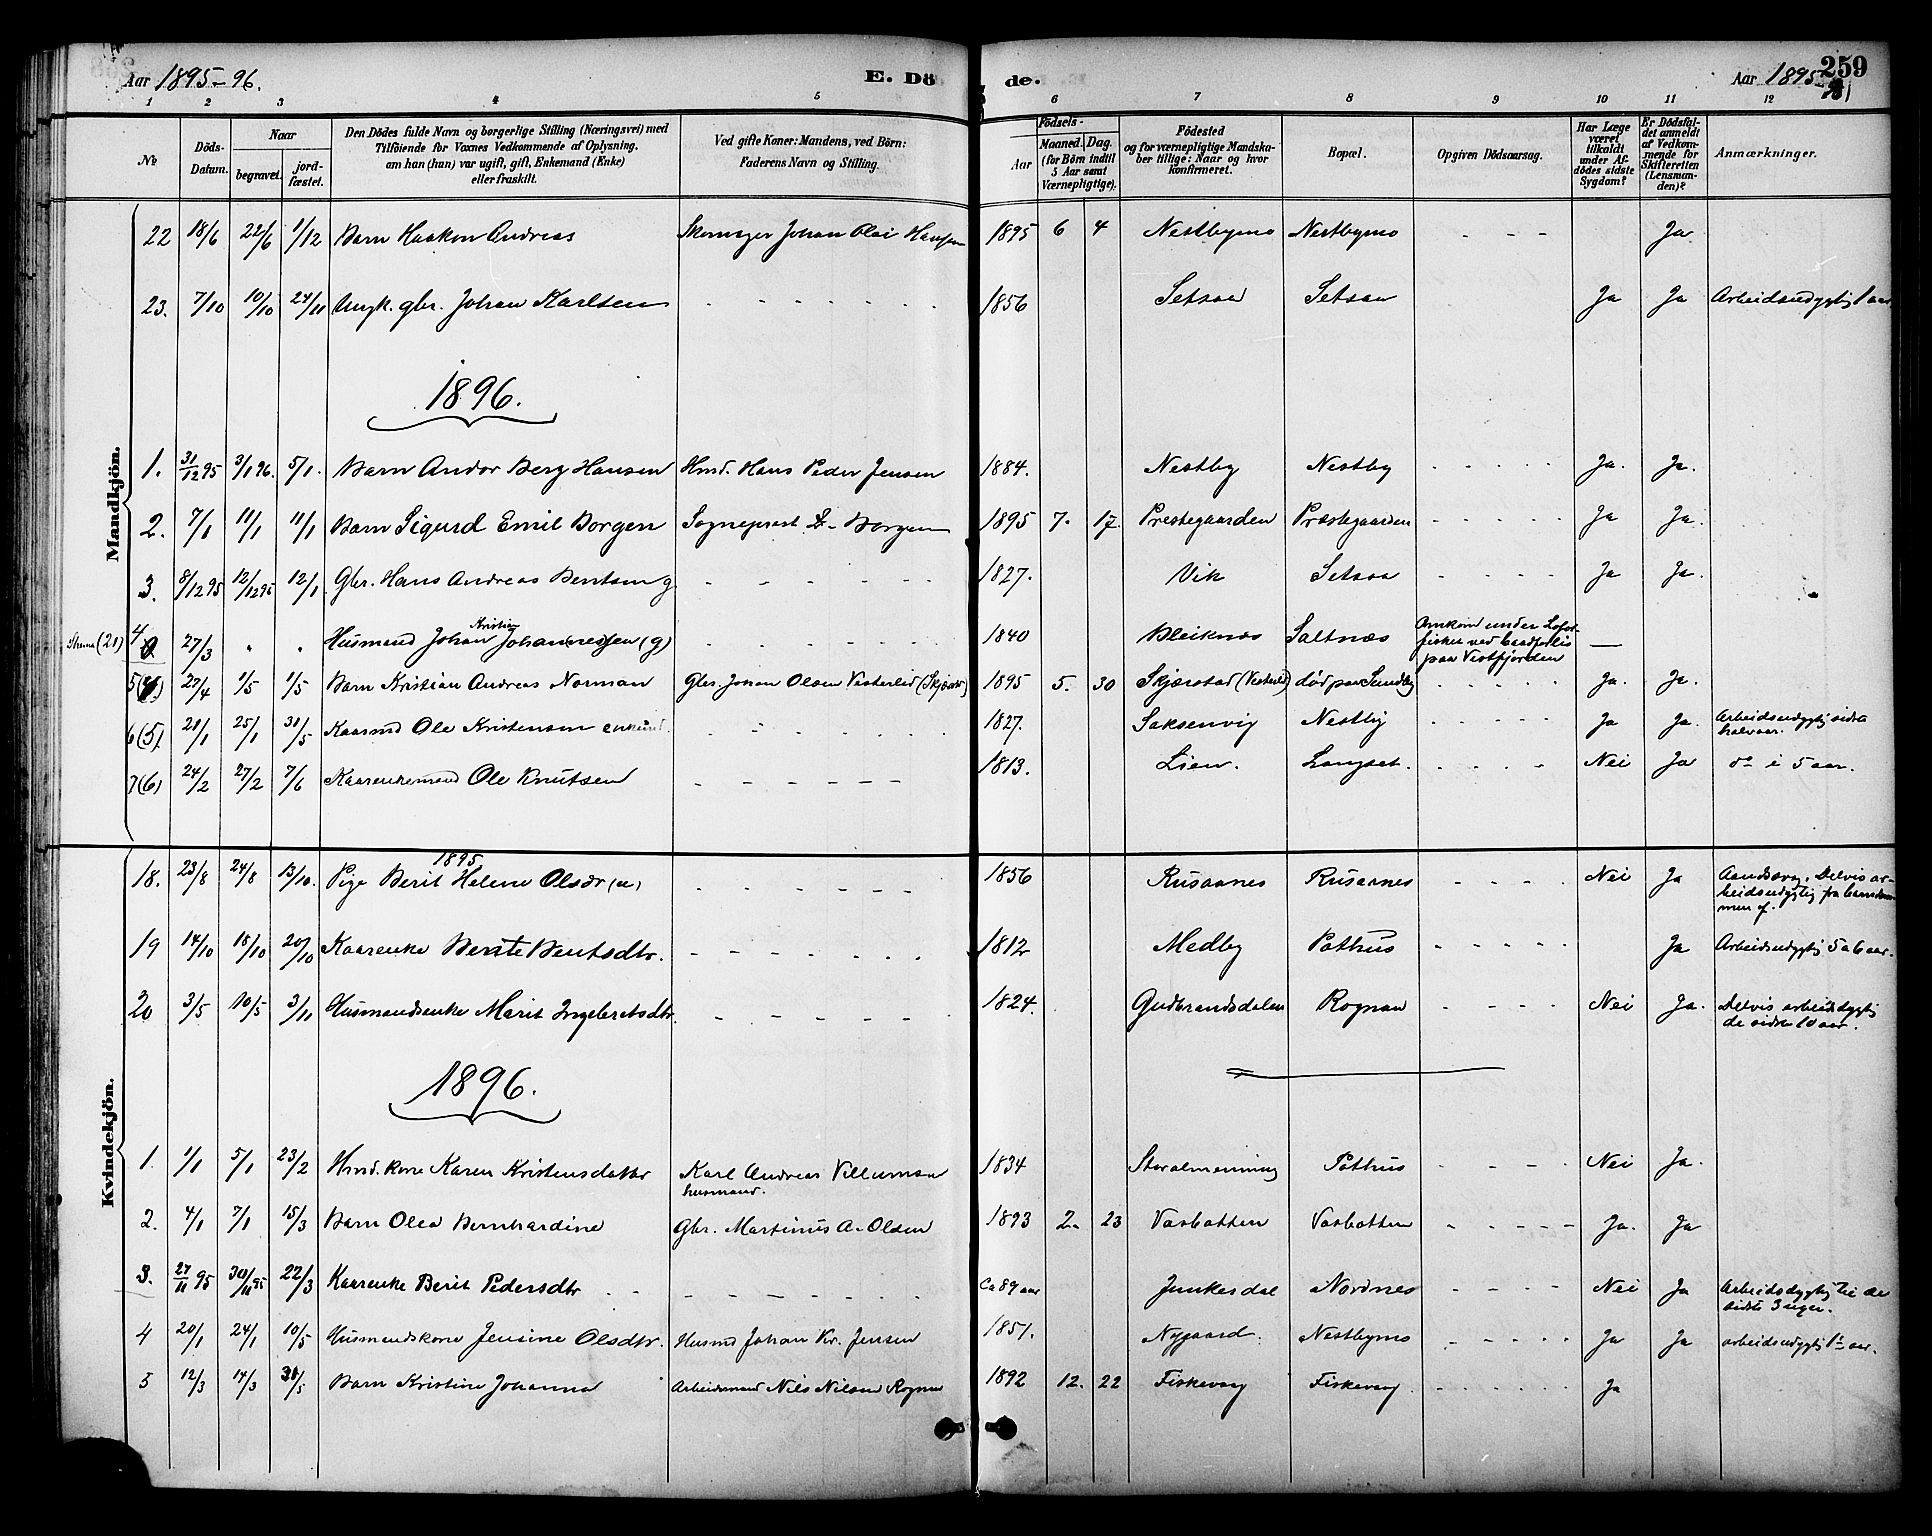 Aar 1895-96.
E. Dö
de.
Aar 1895-
259
1 2 3 4 5 6 7 8 9 10 11 12
No
Döds-
Datum.
Naar
begravet.
jord-
fæstet.
Den Dödes fulde Navn og borgerlige Stilling (Næringsvei) med
Tilföiende for Voxnes Vedkommende af Oplysning,
om han (hun) var ugift, gift, Enkemand (Enke)
eller fraskilt.
Ved gifte Koner: Mandens, ved Börn:
Faderens Navn og Stilling.
Födsels-
Aar
Maaned. Dag.
(for Börn indtil
5 Aar samt
Værnepligtige).
Födested
og for værnepligtige Mandska-
ber tillige: Naar og hvor
konfirmeret.
Bopæl.
Opgiven Dödsaarsag.
Har Læge
været
tilkaldt
under Af-
dödes sidste
Sygdom?
Er Dödsfal-
det anmeldt
af Vedkom-
mende for
Skifteretten
(Lensman-
den)?
Anmærkninger.
Mandkjön.
22 18/6 22/6 1/12 Barn Haakon Andreas Skomager Johan Olai Hansen 1895 6 4 Nestbymo Nestbymo - - - Ja
23. 7/10 10/10 24/11 Ungk. gbr. Johan Karlsen - - - - - - 1856 Setsaa Setsaa Ja Ja Arbeidsudygtig 1 aar
1896.
1. 31/12 95 3/1 96. 5/1. Barn Andor Berg Hansen Hmd. Hans Peder Jensen 1884. Nestby Nestby - - - - - Ja. Ja.
2. 7/1 11/1 11/1 Barn Sigurd Emil Borgen Sogneprest L. Borgen 1895 7. 17. Prestegaarden Præstegaarden - - - - - Ja Ja.
3. 8/12 95 12/12 95 12/1 Gbr. Hans Andreas Bentsen g. - - - - - - 1827. Vik Setsaa - - - - Ja Ja.
(21) 4 27/3 " " Husmand Johan Kristian Johannessen (g) - - - - - - 1840 Bleiknes Saltnæs Omkom under Lofot-
fisket ved
paa Vestfjorden —
5 27/4 1/5 1/5 Barn Kristian Andreas Norman Gbr. Johan Olsen Vesterlid 1895 5. 30 Skjærstad (Vesterlid) død paa Sundby - - - - - Ja. Ja.
6 (5) 21/1 25/1 31/5 Kaarmd Ole Kristensen enkemd. - - - - - 1827. Saksenvig Nestby - - - - - Ja Ja. Arbeidsudygtig sidste
halvaar.
7 (6) 24/2 27/2 7/6 Kaarenkemand Ole Knutsen - - - - - - 1813. Lien. Langset. - - - - Nei Ja do i 5 aar.
Kvindekjön.
1895
18. 23/8 24/8 13/10. Pige Berit Helene Olsdr (u) - - - - - - 1856 Rusaanes Rusaanes - - - - Nei Ja Aandssvag. Delvis ar-
beidsudygtig fra barndom-
men af.
19 14/10 18/10 20/10 Kaarenke Berite Bentsdtr. - - - - - - 1812 Medby Pothus - - - - - Ja Arbeidsudygtig 5 a 6 aar.
20 3/5 10/5 3/11 Husmandsenke Marit Ingebretsdtr. - - - - - - 1824. Gudbrandsdalen Rognan - - - - Nei Ja. Delvis arbeidsdygtig
de sidste 10 aar.
1896.
1. 1/1 5/1 23/2 Hmd. kone Karen Kristensdatter Karl Andreas Villumsen
husmand. 1834 Storalmenning Pothus - - - - Nei Ja.
2. 4/1 7/1 15/3 Barn Olea Bernhardine Gbr. Martinus A. Olsen 1893 2. 23 Vasbotten Vasbotten - - - - - Ja. Ja
3. 27/11 95 30/11 95 22/3 Kaarenke Berit Pedersdtr - - - - - - - ca 89 aar Junkesdal Nordnes - - - - - Nei Ja Arbeidsdygtig til de
sidste 3 uger.
4 20/1 24/1 10/5 Husmandskone Jensine Olsdtr. Husmd Johan Kr. Jensen 1851. Nygaard. Nestbymo - - - - - Ja Ja arbeidsudygtig 1½ aar.
5 12/3 14/3 31/5 Barn Kristine Johanna Arbeidsmand Nils Nilsen Rognan 1892 12. 22 Fiskevaag Fiskevaag. - - - - - - Ja